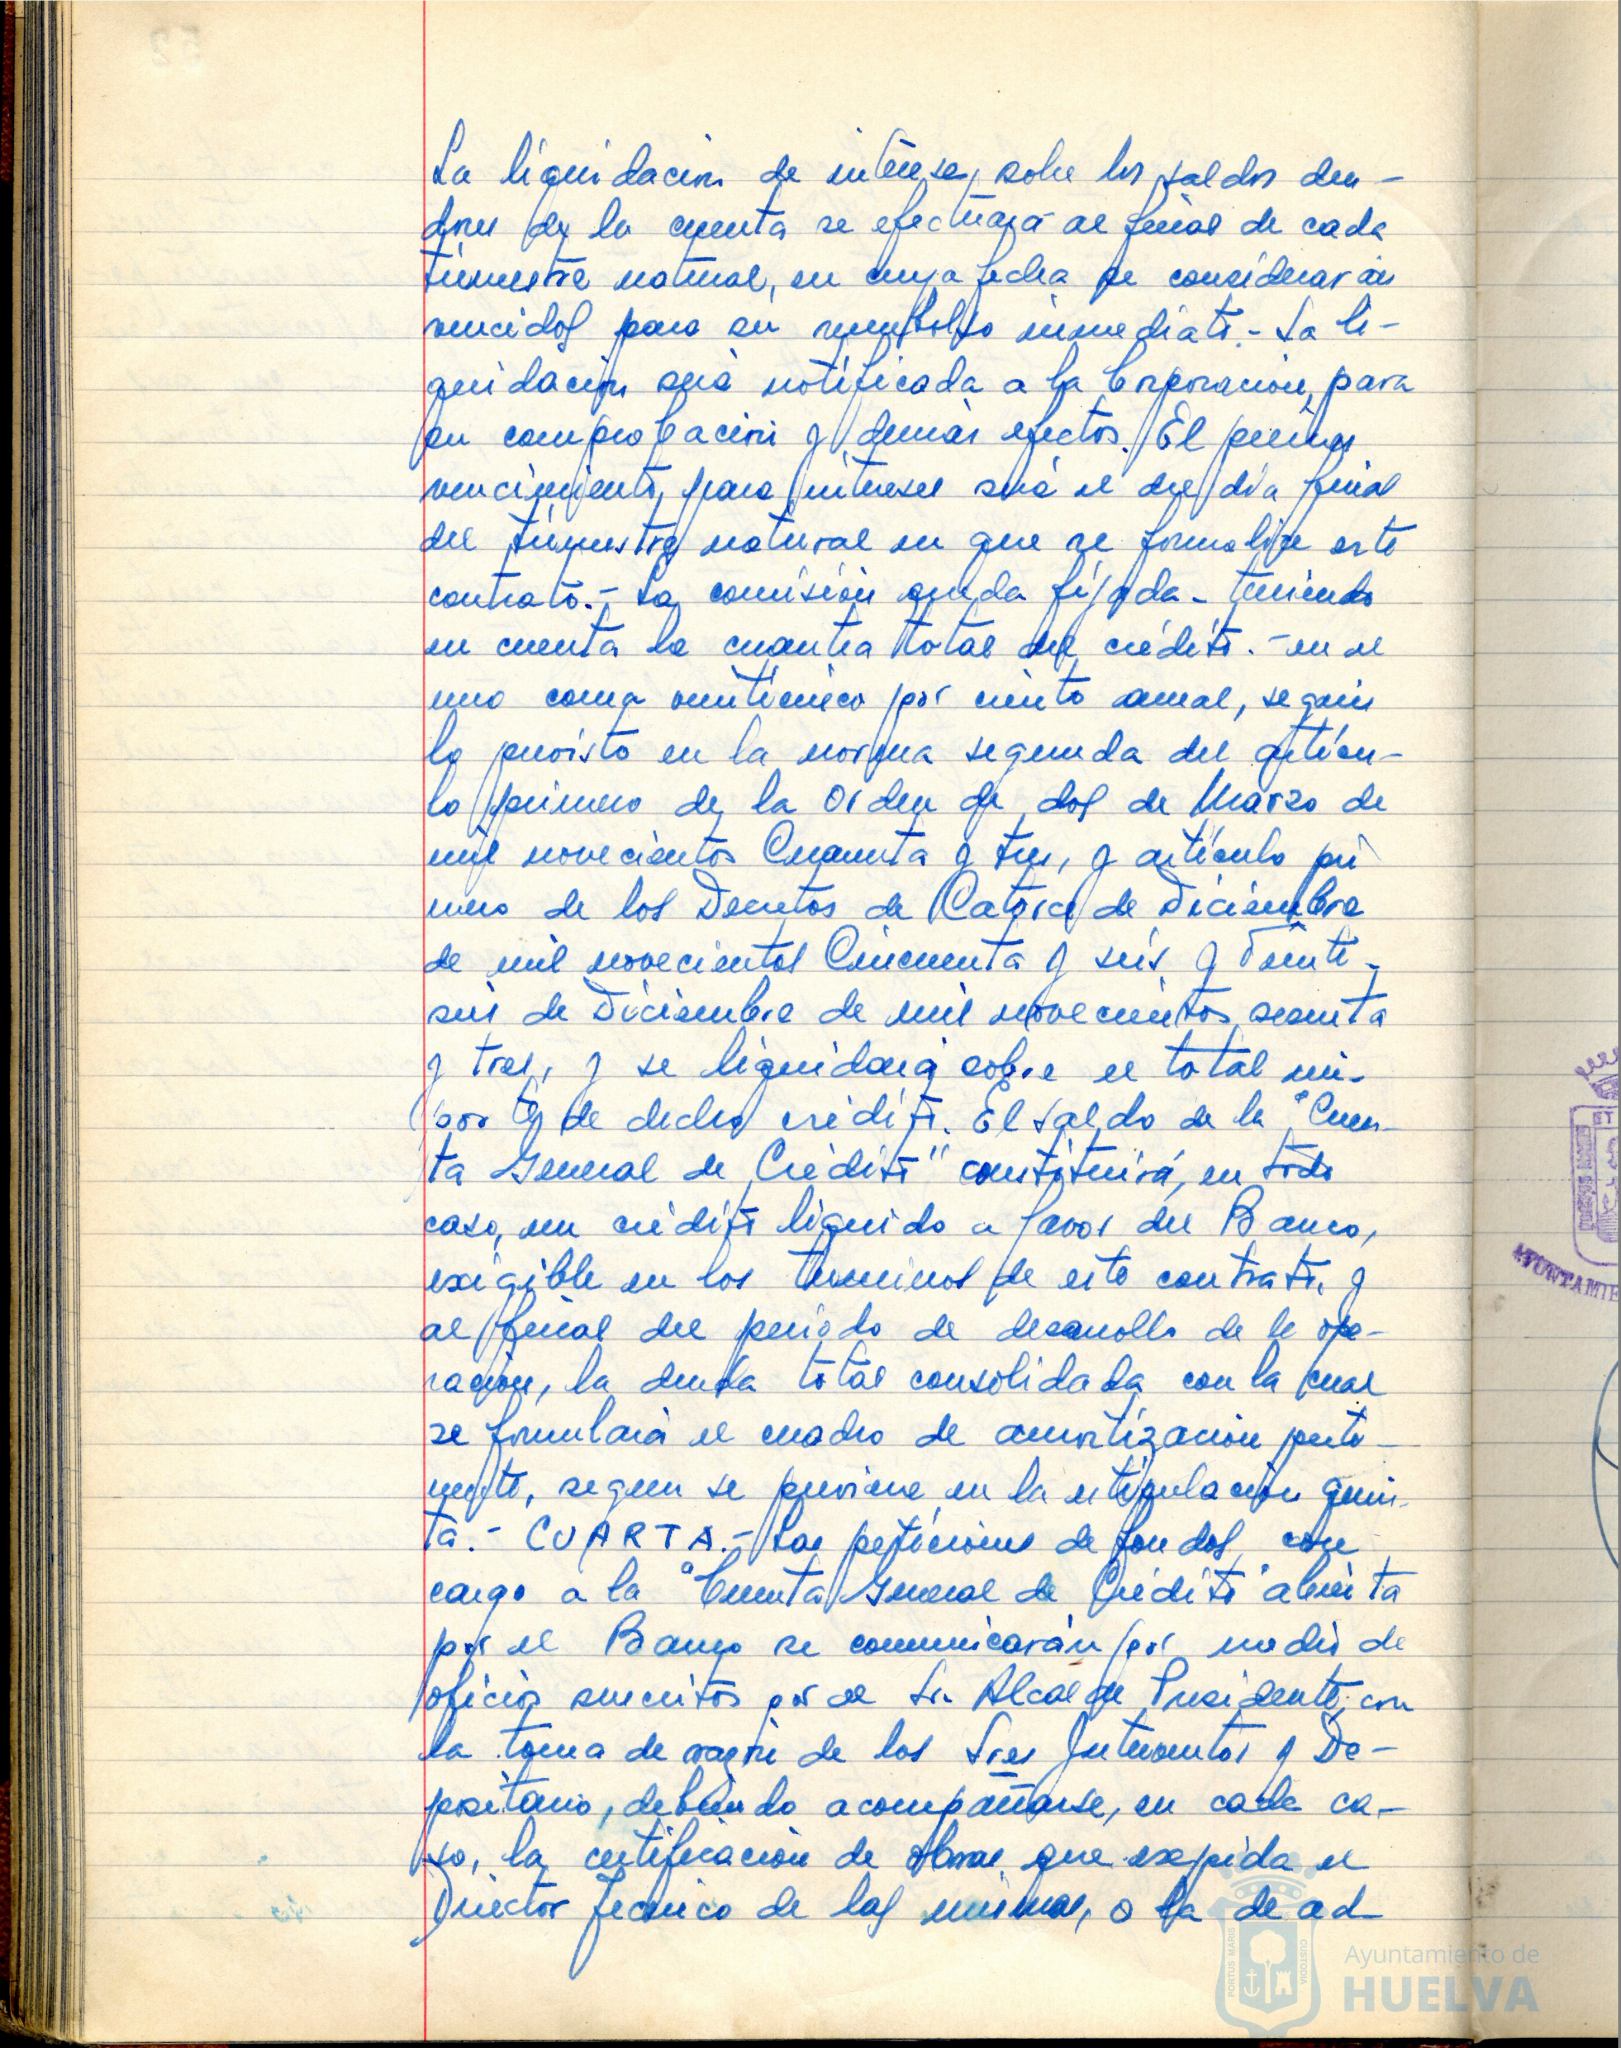 La liquidación de intereses sobre los saldos deu-
dores de la cuenta se efectuará al final de cada
trimestre natural, en cuya fecha se considerarán
vencidos para su reembolso inmediato.- La li-
quidación será notificada a la Corporación, para
su comprobación y demás efectos. El primer
vencimiento para intereses será el del día final
del trimestre natural en que se formalize este
contrato.- La comisión queda fijada - teniendo
en cuenta la cuantía total del crédito.- en el
uno coma veinticinco por ciento anual, según
lo previsto en la norma segunda del artícu-
lo primero de la Orden de dos de Marzo de
mil novecientos Cuarenta y tres, y artículo pri
mero de los Decretos de Catorce de Diciembre
de mil novecientos Cincuenta y seis y Veinti-
seis de Diciembre de mil novecientos sesenta
y tres, y se liquidará sobre el total im-
porte de dicho crédito. El saldo de la "Cuen-
ta General de Crédito" constituirá, en todo
caso, un crédito líquido a favor del Banco,
exigible en los términos de este contrato, y
al final del periodo de desarrollo de la ope-
ración, la deuda total consolidada con la cual
se formulará el cuadro de amortización perti-
nente, según se previene en la estipulación quin-
ta.- CUARTA.- Las peticiones de fondos con
cargo a la "Cuenta General de Crédito" abierta
por el Banco se comunicarán por medio de
oficios suscritos por el Sr. Alcalde Presidente, con
la toma de razón de los Sres Interventor y De-
positario, debiendo acompañarse, en cada ca-
so, la certificación de obras que expida el
Director Técnico de las mismas, o la de ad-
AYUNTAMIE
PORTUS MARIS
CUSTODIA
Ayuntamiento de
HUELVA